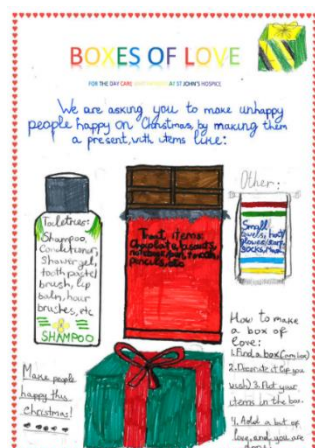 BOXES OF LOVE
FOR THE DAY CARE AT ST JOHN'S HOSPICE
We are asking you to make unhappy
people happy on Christmas, by making them
a present, with items like:
Toiletries:
Shampoo,
Conditioner,
shower gel,
tooth paste/
brush, lip
balm, hair
brushes, etc
SHAMPOO
Treat items:
Chocolate, biscuits,
pencils, etc
Other:
Small
socks,
How to make
a box of
love:
1. Find a box
2. Decorate it (if you
wish) 3. Put your
items in the box.
4. Add a bit of
love, and you are
done!
Make people
happy this
christmas!